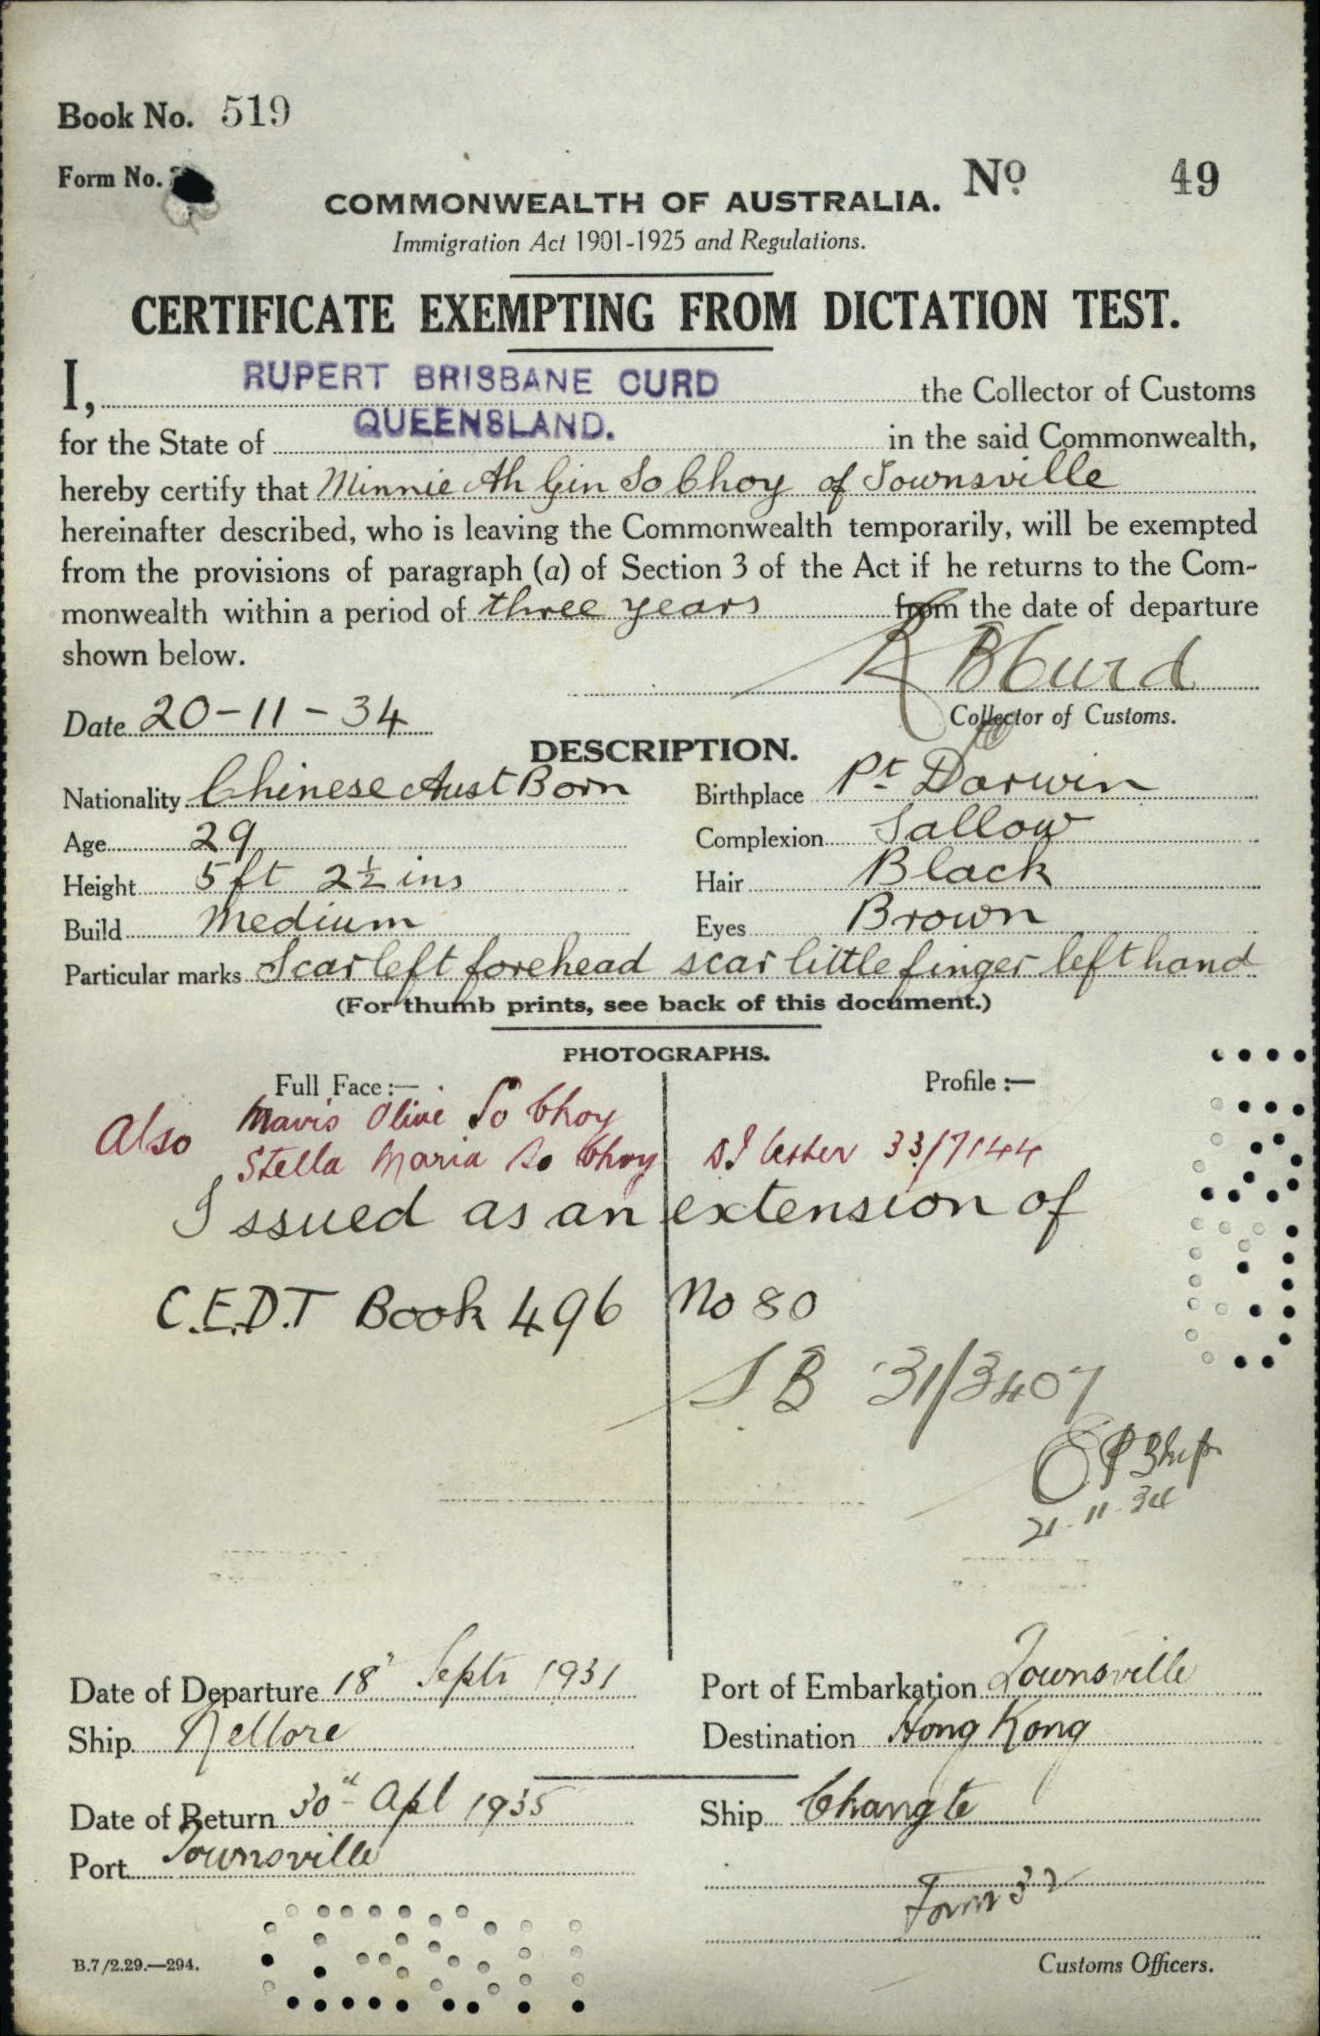 Book No. 519
Form No.
COMMONWEALTH OF AUSTRALIA. No. 49
Immigration Act 1901-1925 and Regulations.
CERTIFICATE EXEMPTING FROM DICTATION TEST.
I, RUPERT BRISBANE CURD the Collector of Customs
for the State of QUEENSLAND. in the said Commonwealth,
hereby certify that Minnie Ah Gin So Choy of Townsville
hereinafter described, who is leaving the Commonwealth temporarily, will be exempted
from the provisions of paragraph (a) of Section 3 of the Act if he returns to the Com-
monwealth within a period of three years from the date of departure
shown below.
R B Curd
Date 20-11-34
Collector of Customs.
DESCRIPTION.
Nationality Chinese Aust Born Birthplace Pt Darwin
Age 29 Complexion Sallow
Height 5 ft 2½ ins Hair Black
Build Medium Eyes Brown
Particular marks Scar left forehead scar little finger left hand
(For thumb prints, see back of this document.)
PHOTOGRAPHS.
Full Face:— Profile:—
Also Mavis Olive So Choy
Stella Maria So Choy 33/7144
Issued as an extension of
C.E.D.T Book 496 No 80
S B 31/3407
21-11-34
Date of Departure 18 Septr 1931 Port of Embarkation Townsville
Ship Nellore Destination Hong Kong
Date of Return 30th Apl 1935 Ship Changte
Port Townsville
Form 32
B.7/2.29.—294. Customs Officers.